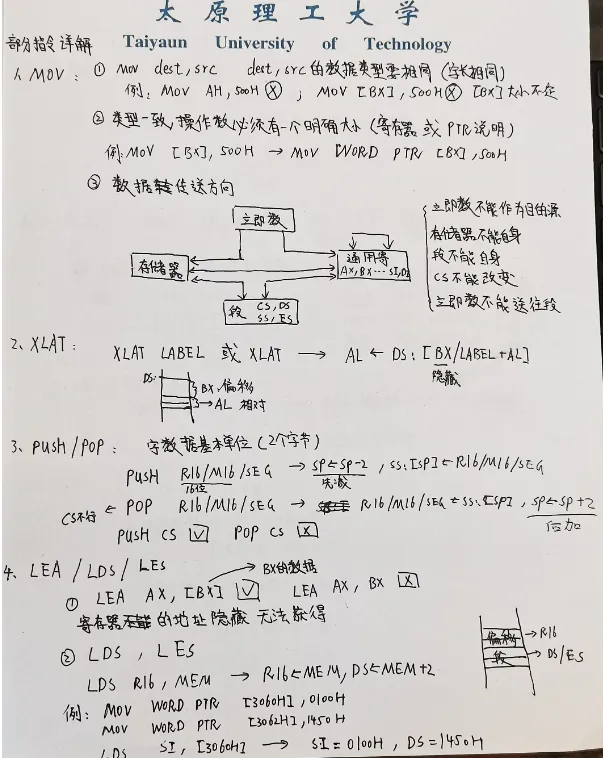 太原理工大学
部分指令详解 Taiyaun University of Technology
1、MOV： ① Mov dest, src dest, src的数据类型要相同（字长相同）
例：MOV AH, 500H ⓧ ; MOV [BX], 500H ⓧ [BX]大小不定
② 类型一致，操作数必须有一个明确大小（寄存器 或 PTR说明）
例：MOV [BX], 500H → MOV WORD PTR [BX], 500H
③ 数据传送方向
立即数
存储器
通用寄
AX, BX … SI, DI
段 CS, DS
SS, ES
立即数不能作为目的源
存储器不能自身
段不能自身
CS不能改变
立即数不能送往段
2、XLAT： XLAT LABEL 或 XLAT → AL ← DS：[BX/LABEL+AL]
隐藏
DS:
BX 偏移
→AL 相对
3、PUSH/POP： 字数据基本单位（2个字节）
PUSH R16/M16/SEG → SP←SP-2 , SS:[SP]←R16/M16/SEG
16位 先减
CS不行 ← POP R16/M16/SEG → R16/M16/SEG ← SS:[SP] , SP←SP+2
后加
PUSH CS ☑ POP CS ☒
4、LEA / LDS / LES
→ BX的数据
① LEA AX, [BX] ☑ LEA AX, BX ☒
寄存器的地址隐藏 无法获得
② LDS , LES
LDS R16, MEM → R16←MEM, DS←MEM+2
偏移 →R16
段 →DS/ES
例：MOV WORD PTR [3060H], 0100H
MOV WORD PTR [3062H], 1450H
LDS SI, [3060H] → SI=0100H, DS=1450H